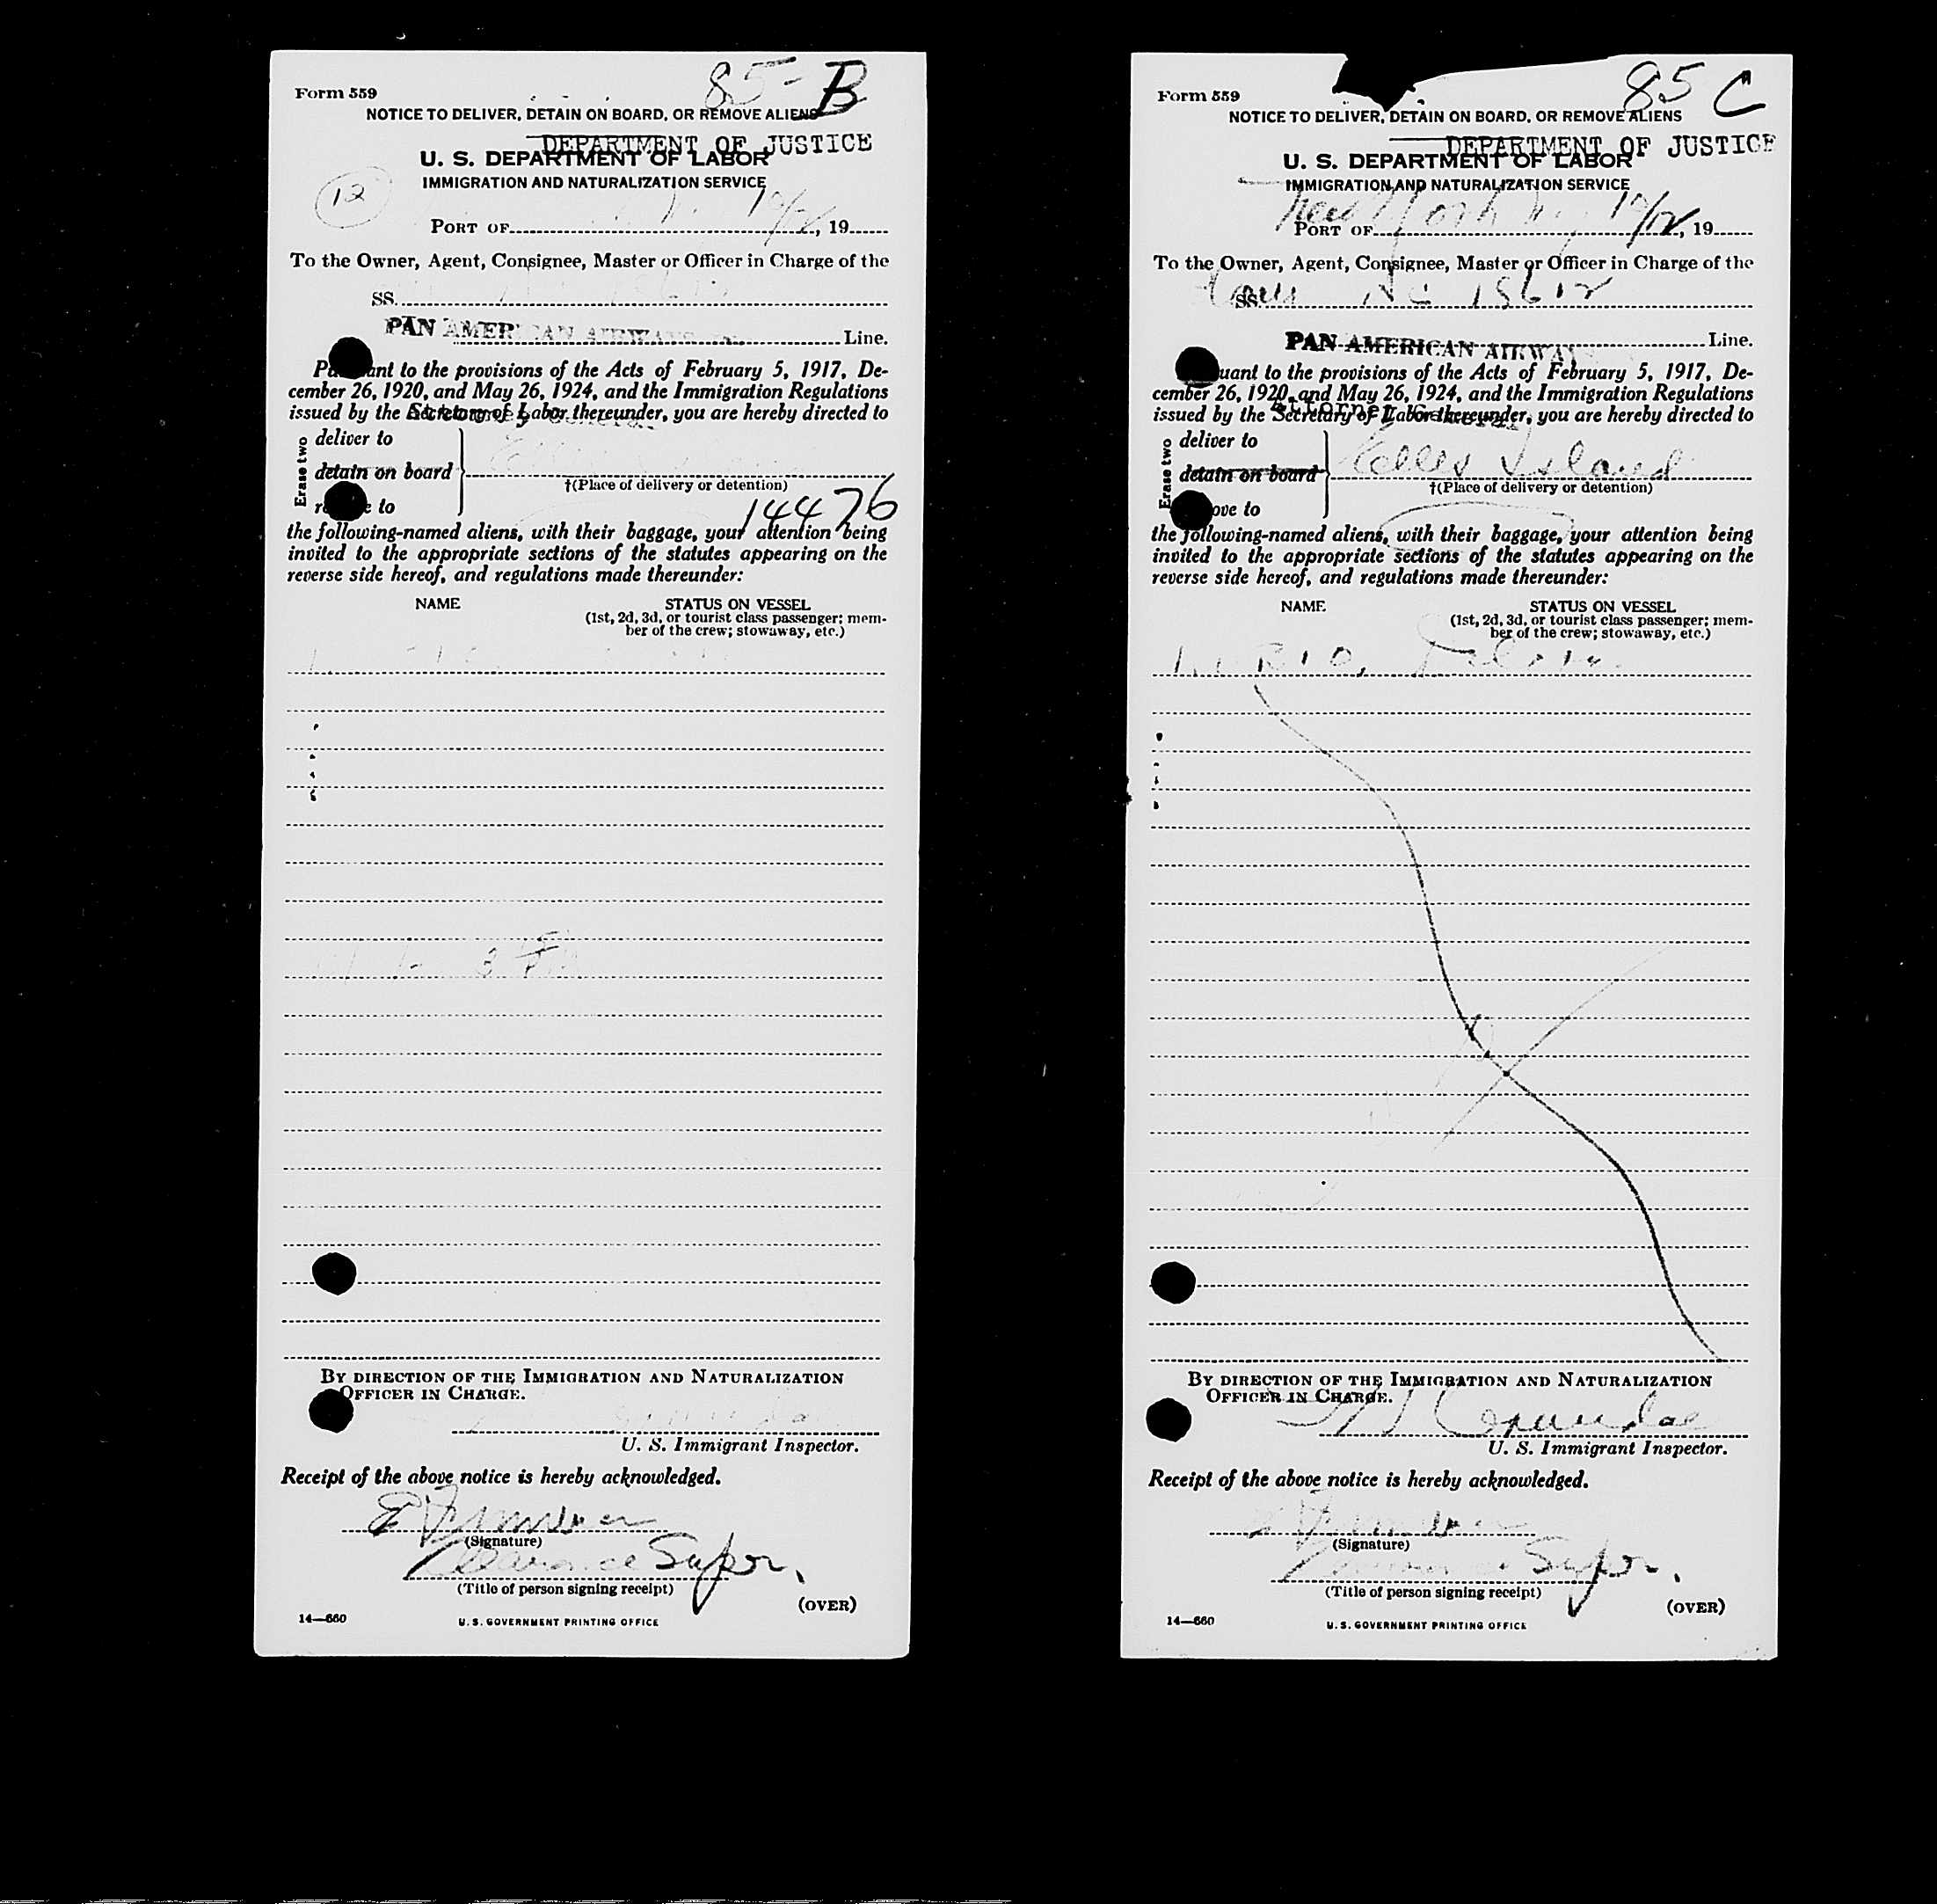 85-B
Form 559
NOTICE TO DELIVER, DETAIN ON BOARD, OR REMOVE ALIENS
DEPARTMENT OF JUSTICE
U. S. DEPARTMENT OF LABOR
IMMIGRATION AND NATURALIZATION SERVICE
12
PORT OF , 19
To the Owner, Agent, Consignee, Master or Officer in Charge of the
SS.
PAN AMERICAN AIRWAYS Line.
Pursuant to the provisions of the Acts of February 5, 1917, De-
cember 26, 1920, and May 26, 1924, and the Immigration Regulations
issued by the Secretary of Labor thereunder, you are hereby directed to
Erase two
deliver to
detain on board
†(Place of delivery or detention)
to
14476
the following-named aliens, with their baggage, your attention being
invited to the appropriate sections of the statutes appearing on the
reverse side hereof, and regulations made thereunder:
NAME STATUS ON VESSEL
(1st, 2d, 3d, or tourist class passenger; mem-
ber of the crew; stowaway, etc.)
BY DIRECTION OF THE IMMIGRATION AND NATURALIZATION
OFFICER IN CHARGE.
U. S. Immigrant Inspector.
Receipt of the above notice is hereby acknowledged.
(Signature)
Clearance Supvr.
(Title of person signing receipt)
(OVER)
14—660 U. S. GOVERNMENT PRINTING OFFICE
85 C
Form 559
NOTICE TO DELIVER, DETAIN ON BOARD, OR REMOVE ALIENS
DEPARTMENT OF JUSTICE
U. S. DEPARTMENT OF LABOR
IMMIGRATION AND NATURALIZATION SERVICE
PORT OF New York , 19
To the Owner, Agent, Consignee, Master or Officer in Charge of the
SS. NC 18612
PAN AMERICAN AIRWAY Line.
uant to the provisions of the Acts of February 5, 1917, De-
cember 26, 1920, and May 26, 1924, and the Immigration Regulations
Attorney General
issued by the Secretary of Labor thereunder, you are hereby directed to
Erase two
deliver to
detain on board Ellis Island
†(Place of delivery or detention)
ove to
the following-named aliens, with their baggage, your attention being
invited to the appropriate sections of the statutes appearing on the
reverse side hereof, and regulations made thereunder:
NAME STATUS ON VESSEL
(1st, 2d, 3d, or tourist class passenger; mem-
ber of the crew; stowaway, etc.)
BY DIRECTION OF THE IMMIGRATION AND NATURALIZATION
OFFICER IN CHARGE.
U. S. Immigrant Inspector.
Receipt of the above notice is hereby acknowledged.
(Signature)
Supvr.
(Title of person signing receipt)
(OVER)
14—660 U. S. GOVERNMENT PRINTING OFFICE